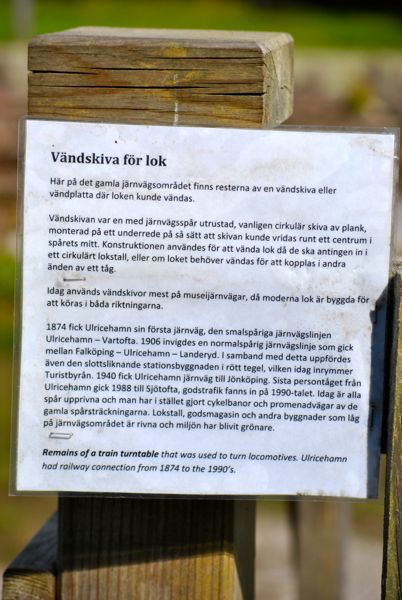 Vändskiva för lok
Här på det gamla järnvägsområdet finns resterna av en vändskiva eller
vändplatta där loken kunde vändas.
Vändskivan var en med järnvägsspår utrustad, vanligen cirkulär skiva av plank,
monterad på ett underrede på så sätt att skivan kunde vridas runt ett centrum i
spårets mitt. Konstruktionen användes för att vända lok då de ska antingen in i
ett cirkulärt lokstall, eller om loket behöver vändas för att kopplas i andra
änden av ett tåg.
Idag används vändskivor mest på museijärnvägar, då moderna lok är byggda för
att köras i båda riktningarna.
1874 fick Ulricehamn sin första järnväg, den smalspåriga järnvägslinjen
Ulricehamn – Vartofta. 1906 invigdes en normalspårig järnvägslinje som gick
mellan Falköping – Ulricehamn – Landeryd. I samband med detta uppfördes
även den slottsliknande stationsbyggnaden i rött tegel, vilken idag inrymmer
Turistbyrån. 1940 fick Ulricehamn järnväg till Jönköping. Sista persontåget från
Ulricehamn gick 1988 till Sjötofta, godstrafik fanns in på 1990-talet. Idag är alla
spår upprivna och man har i stället gjort cykelbanor och promenadvägar av de
gamla spårsträckningarna. Lokstall, godsmagasin och andra byggnader som låg
på järnvägsområdet är rivna och miljön har blivit grönare.
Remains of a train turntable that was used to turn locomotives. Ulricehamn
had railway connection from 1874 to the 1990's.